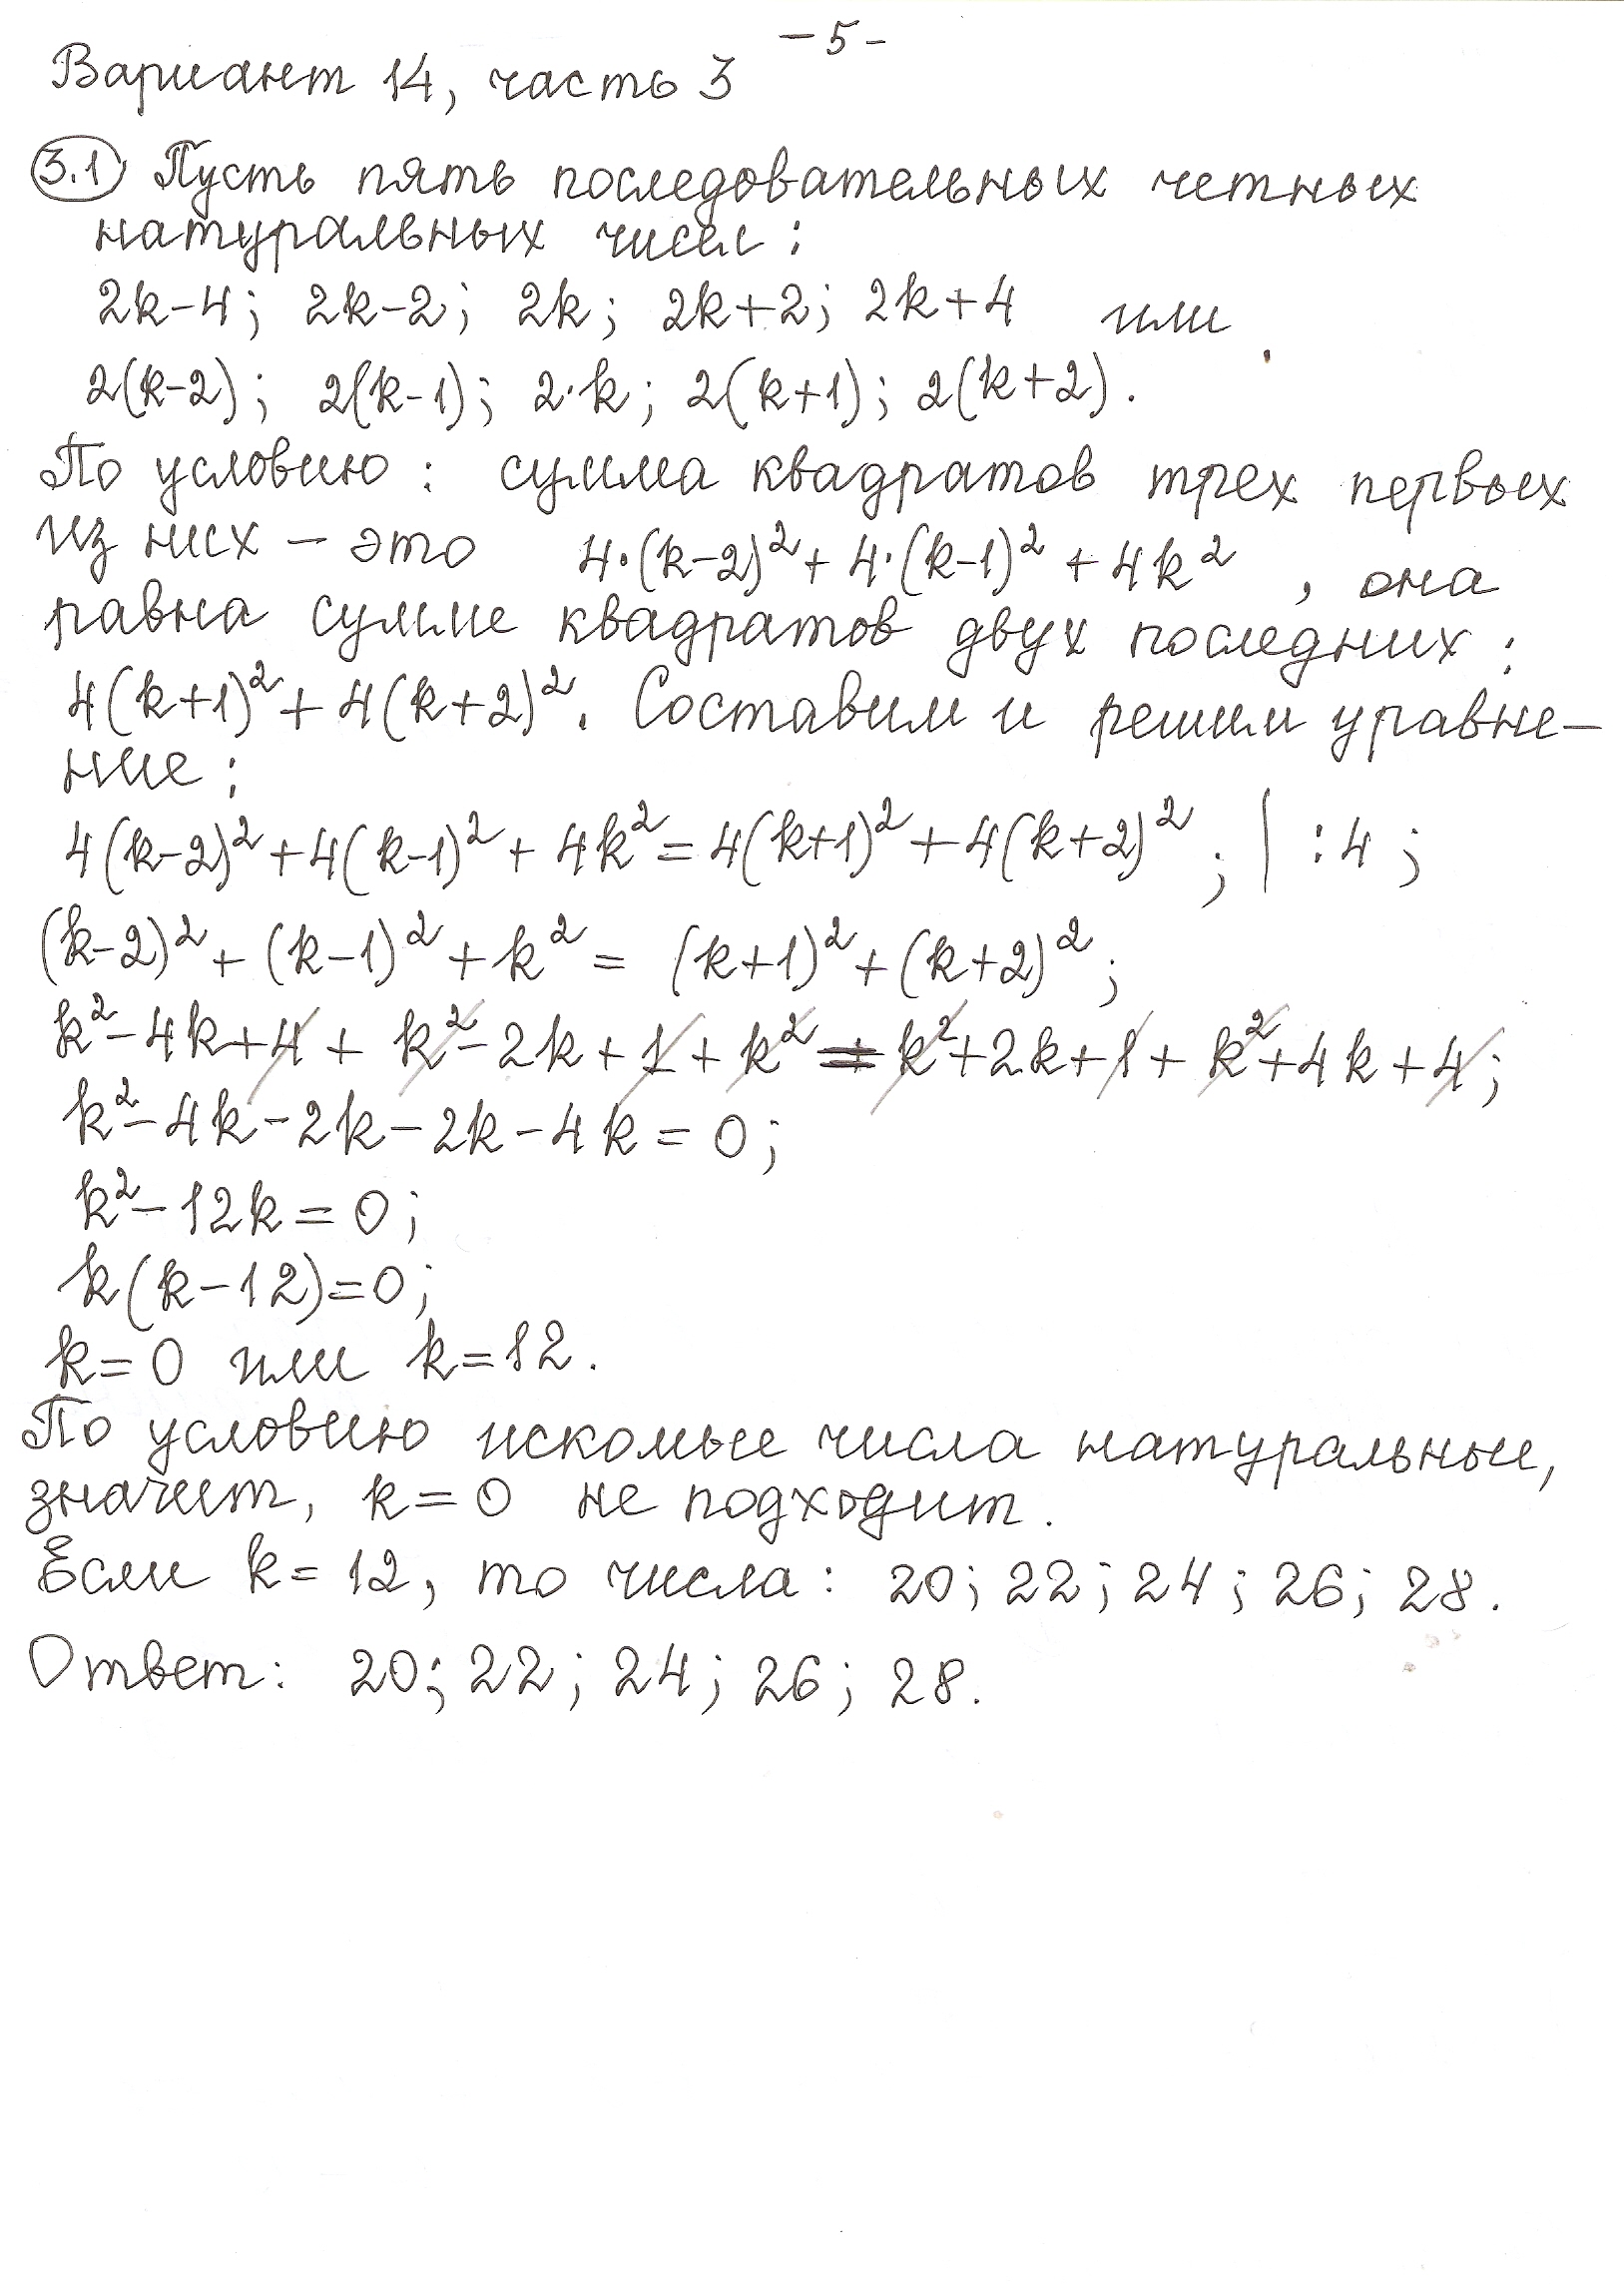 -5-
Вариант 14, часть 3
3.1 Пусть пять последовательных четных
натуральных чисел:
2k-4; 2k-2; 2k; 2k+2; 2k+4 или
2(k-2); 2(k-1); 2·k; 2(k+1); 2(k+2).
По условию: сумма квадратов трех первых
из них – это 4·(k-2)²+4·(k-1)²+4k², она
равна сумме квадратов двух последних:
4(k+1)²+4(k+2)². Составим и решим уравне-
ние:
4(k-2)²+4(k-1)²+4k²=4(k+1)²+4(k+2)²; | :4;
(k-2)²+(k-1)²+k²=(k+1)²+(k+2)²;
k²-4k+4+k²-2k+1+k²=k²+2k+1+k²+4k+4;
k²-4k-2k-2k-4k=0;
k²-12k=0;
k(k-12)=0;
k=0 или k=12.
По условию искомые числа натуральные,
значит, k=0 не подходит.
Если k=12, то числа: 20; 22; 24; 26; 28.
Ответ: 20; 22; 24; 26; 28.